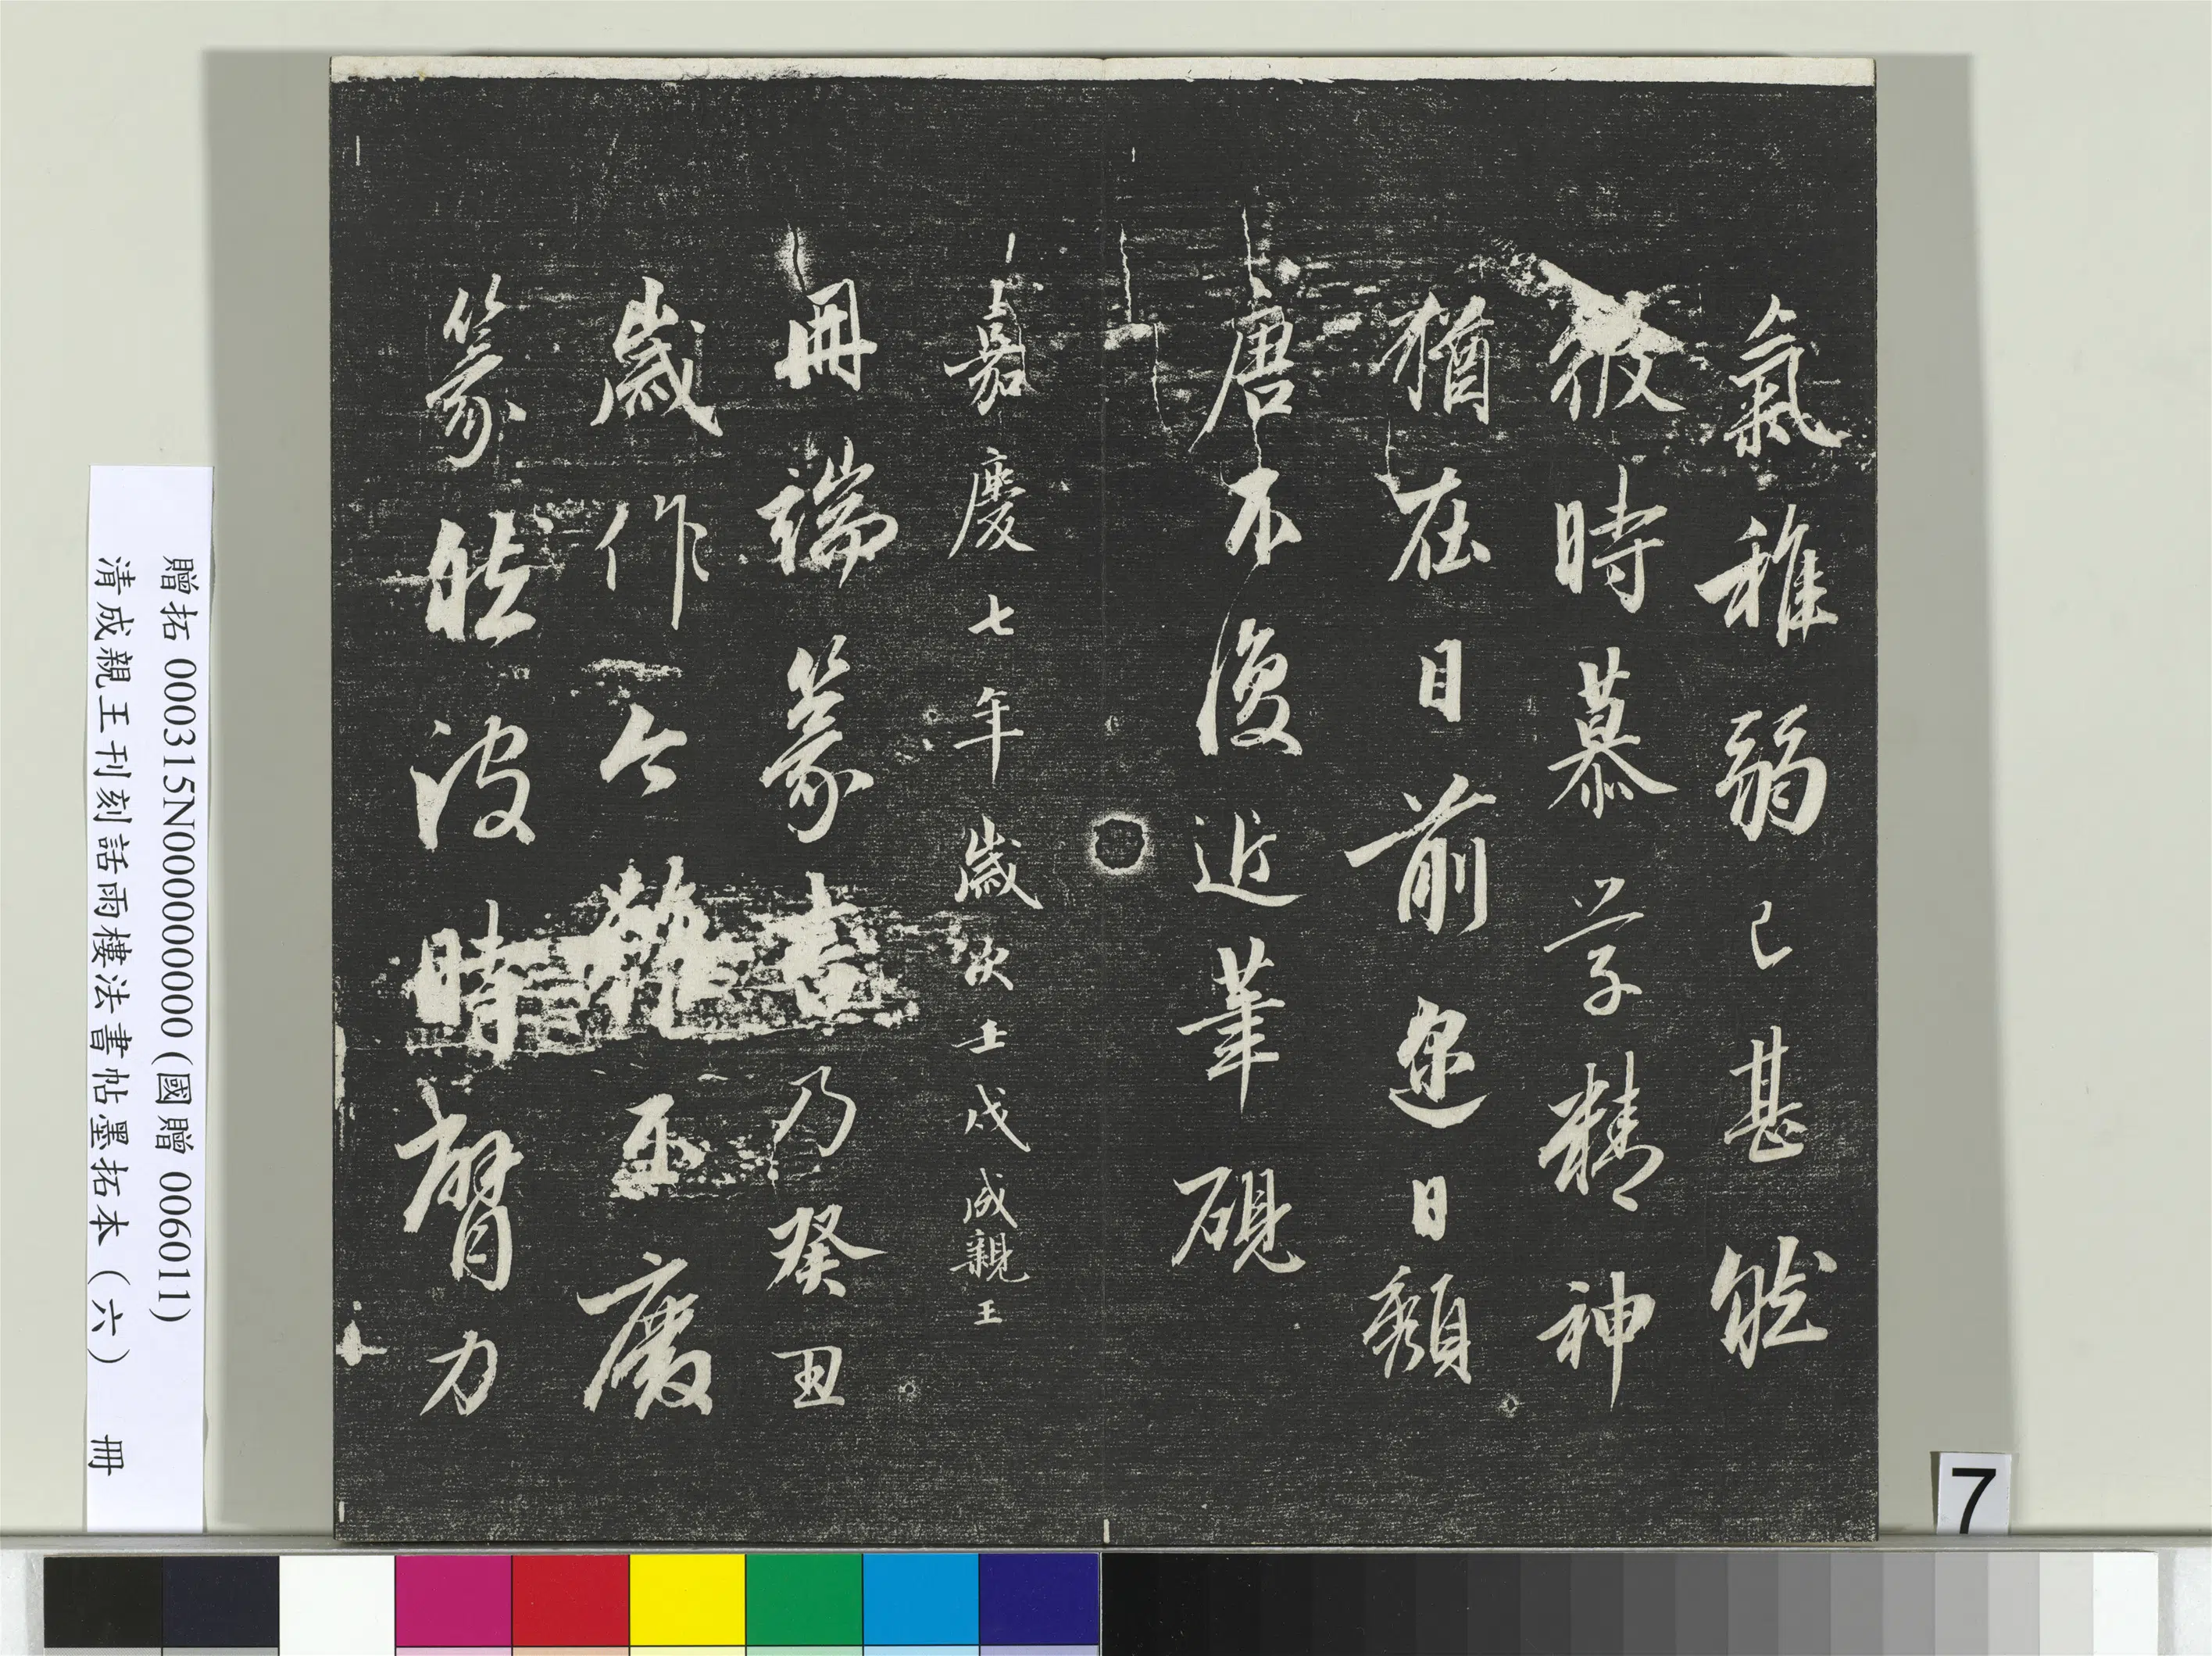 氣稚弱已甚然
彼時慕學精神
猶在目前迩日頹
唐不復近筆硯
嘉慶七年歲次壬戌成親王
冊端篆書乃癸丑
歲作今雖不廢
篆然彼時臂力
贈拓 000315N000000000 (國贈 006011)
清成親王刊刻話雨樓法書帖墨拓本（六） 冊
7